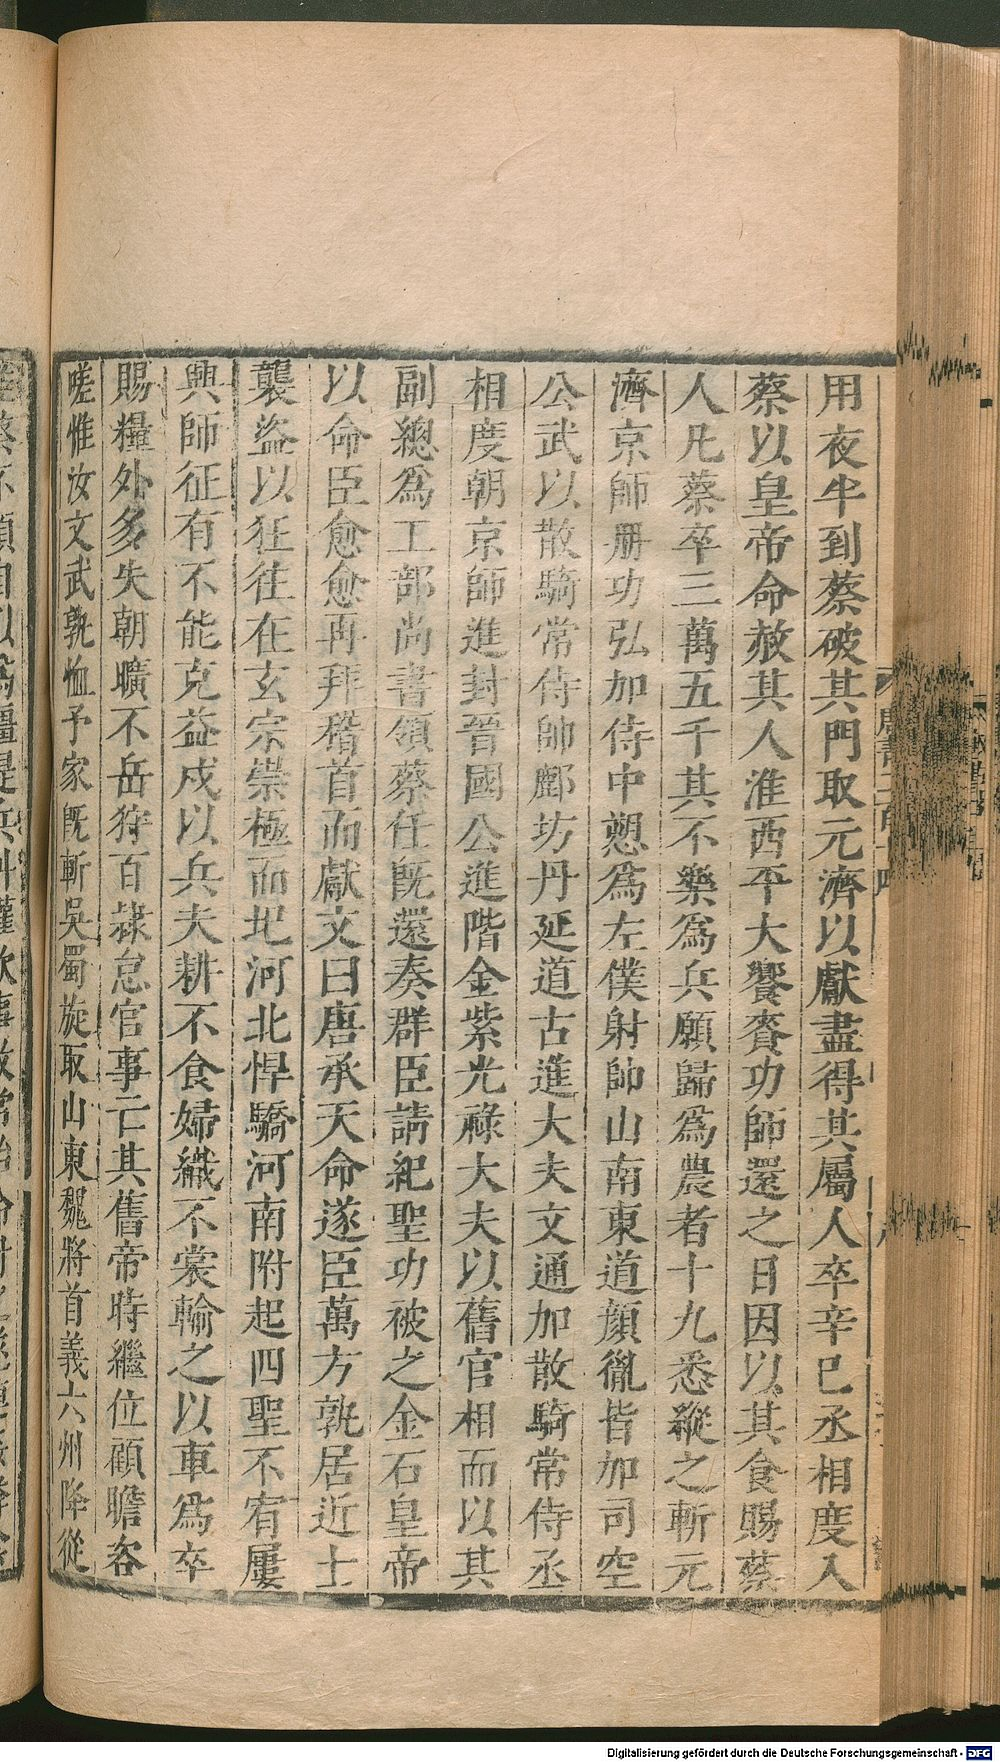 用夜半到蔡破其門取元濟以獻盡得其屬人卒辛巳丞相度入
蔡以皇帝命赦其人淮西平大饗賚功師還之日因以其食賜蔡
人凡蔡卒三萬五千其不樂爲兵願歸爲農者十九悉縱之斬元
濟京師册功弘加侍中愬爲左僕射帥山南東道顏胤皆加司空
公武以散騎常侍帥鄜坊丹延道古進大夫文通加散騎常侍丞
相度朝京師進封晉國公進階金紫光祿大夫以舊官相而以其
副總爲工部尚書領蔡任旣還奏群臣請紀聖功被之金石皇帝
以命臣愈愈再拜稽首而獻文曰唐承天命遂臣萬方孰居近土
襲盜以狂往在玄宗崇極而圮河北悍驕河南附起四聖不宥屢
興師征有不能克益戍以兵夫耕不食婦織不裳輸之以車爲卒
賜糧外多失朝曠不岳狩百隸怠官事亡其舊帝時繼位顧瞻咨
嗟惟汝文武孰恤予家旣斬吳蜀旋取山東魏將首義六州降從
Digitalisierung gefördert durch die Deutsche Forschungsgemeinschaft - DFG